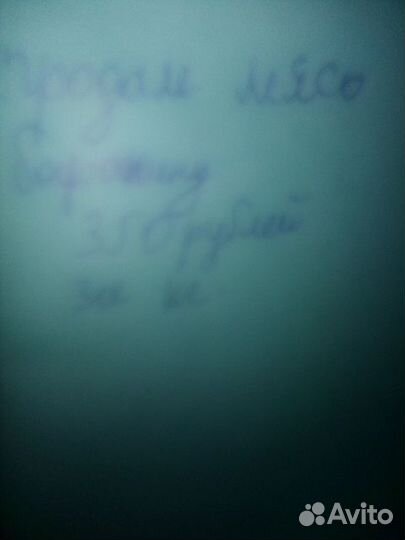 Продам мясо
баранину
350 рублей
за кг
Avito